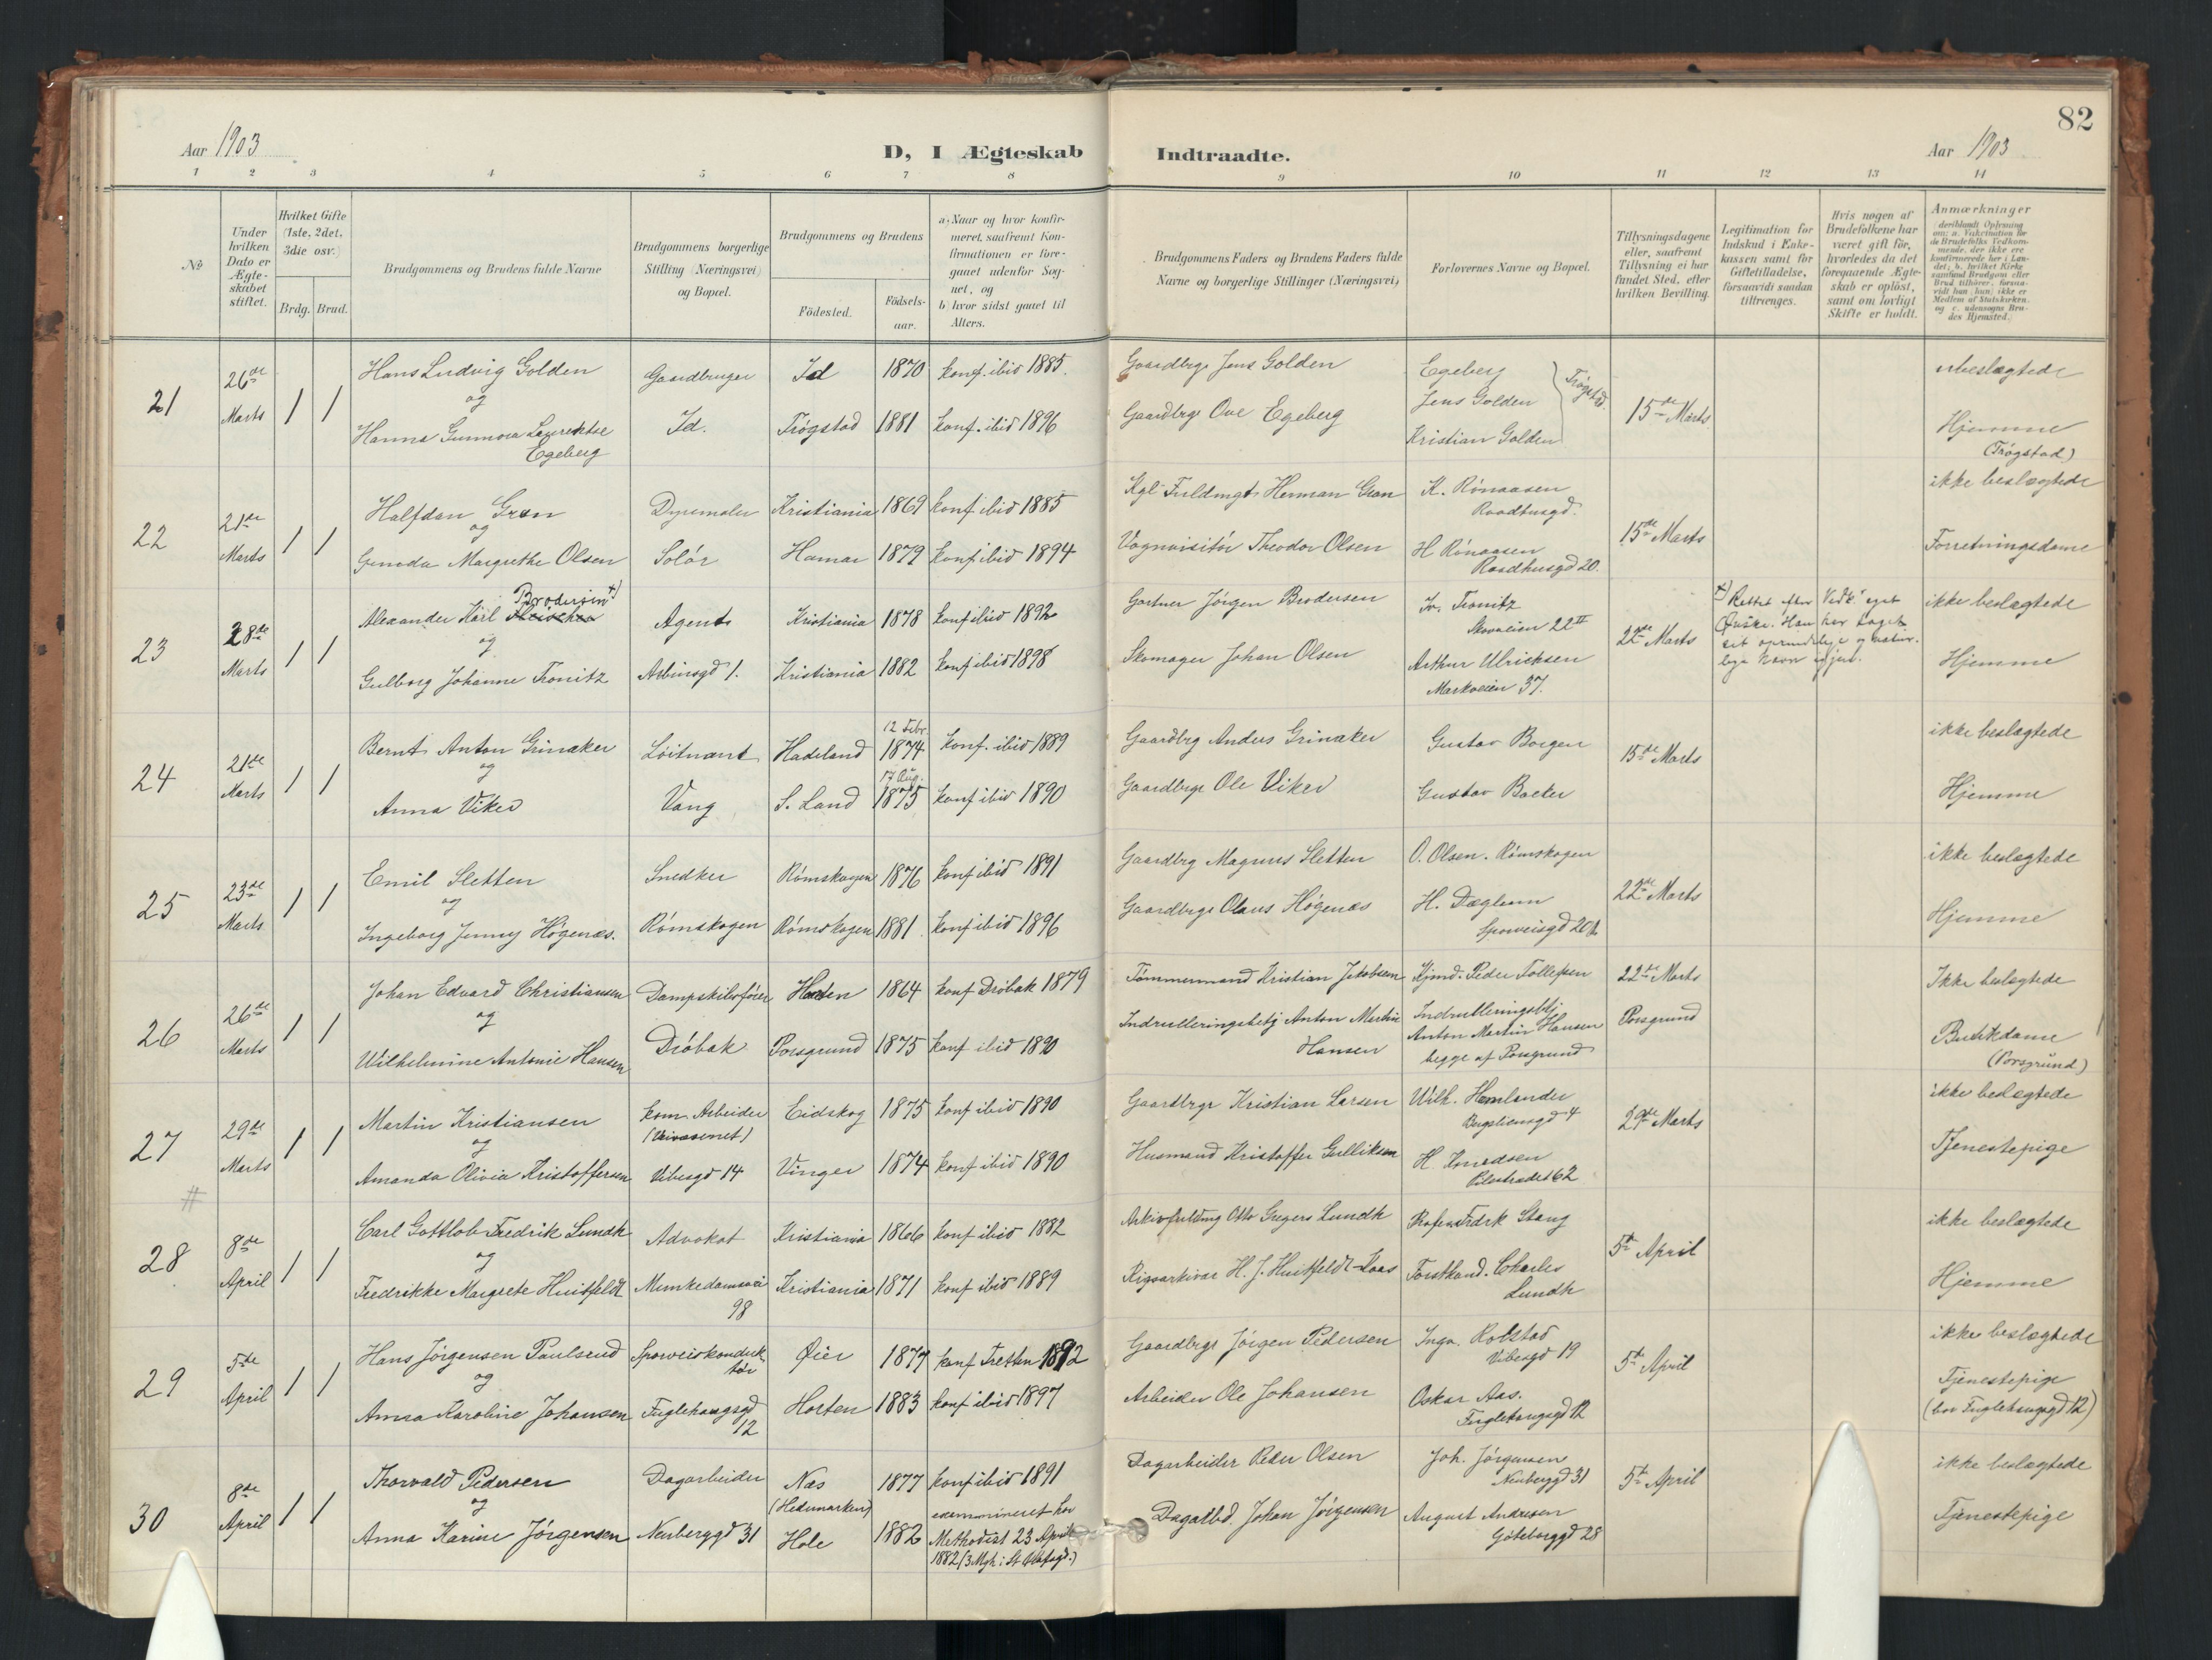 82
Aar 1903
D, I Ægteskab Indtraadte.
Aar 1903
1 2 3 4 5 6 7 8 9 10 11 12 13 14
No
Under hvilken Dato er Ægte-skabet stiftet.
Hvilket Gifte (1ste, 2det, 3die osv.)
Brdg. Brud.
Brudgommens og Brudens fulde Navne
Brudgommens borgerlige Stilling (Næringsvei) og Bopæl.
Brudgommens og Brudens
Födested.
Födsels-aar.
a) Naar og hvor konfir-meret, saafremt Kon-firmationen er fore-gaaet udenfor Sog-net, og
b) hvor sidst gaaet til Alters.
Brudgommens Faders og Brudens Faders fulde Navne og borgerlige Stillinger (Næringsvei)
Forlovernes Navne og Bopæl.
Tillysningsdagene eller, saafremt Tillysning ei har fundet Sted, efter hvilken Bevilling.
Legitimation for Indskud i Enke-kassen samt for Giftetilladelse, forsaavidt saadan tiltrænges.
Hvis nogen af Brudefolkene har været gift för, hvorledes da det foregaaende Ægte-skab er oplöst, samt om lovligt Skifte er holdt.
Anmærkninger
(deriblandt Oplysning om: a. Vakcination for de Brudefolks Vedkom-mende, der ikke ere konfirmerede her i Lan-det; b. hvilket Kirke-samfund Brudgom eller Brud tilhörer, forsaa-vidt han (hun) ikke er Medlem af Statskirken, og c. udensogns Bru-des Hjemsted.)
21 26de Marts 1 1
Hans Ludvig Golden Gaardbruger Id 1870 konf. ibid 1885. Gaardbrgr Jens Golden Egeberg
og Jens Golden Trögstad. 15de Marts ubeslægtede
Hanna Gunnora Egeberg Id. Trögstad 1881 konf. ibid 1896 Gaardbrgr Ove Egeberg Kristian Golden Hjemme
(Trögstad)
22 21de Marts 1 1
Halfdan Gran Dyremaler Kristiania 1869 konf ibid 1885 Kgl Fuldmgt. Herman Gran K. Rönaasen Raadhusgd. ikke beslægtede
og 15de Marts
Gunda Margrethe Olsen Solör Hamar 1879 konf ibid 1894 Vognvisitör Theodor Olsen H Rönaasen Raadhusgd 20. Forretningsdame
23 28de Marts 1 1
Brodersen +)
Alexander Karl Agent Kristiania 1878 konf ibid 1892 Gartner Jörgen Brodersen Tronitz Skovveien 22 II ikke beslægtede
og 22de Marts
+) Rettet efter Vedk.' eget
Önske. Han har taget
sit oprindelige og natur-
lige Navn igjen.
Gulborg Johanne Tronitz Arbinsgd 1. Kristiania 1882 konf ibid 1898 Skomager Johan Olsen Arthur Ulricksen Markveien 37. Hjemme
24 21de Marts 1 1
12 Febr
Bernt Anton Grinaker Löitnant Hadeland 1874 konf. ibid 1889 Gaardbrg Anders Grinaker Gustav Borgen 15de Marts ikke beslægtede
og 17 Aug.
Anna Viker Vang S. Land 1875 konf ibid 1890 Gaardbrgr Ole Viker Gustav Backer Hjemme
25 23de Marts 1 1
Emil Sletten Snedker Römskogen 1876 konf ibid 1891 Gaardbrg Magnus Sletten O. Olsen. Römskogen ikke beslægtede
og 22de Marts
Ingeborg Jenny Högenæs. Römskogen Römskogen 1881 konf ibid 1896 Gaardbrgr Olaus Högenæs H. Dæglum Sporveisgd 20 Hjemme
26 26de Marts 1 1
Johan Edvard Christiansen Dampskibsförer Horten 1864 konf Dröbak 1879 Tömmermand Kristian Jakobsen Kjmd. Peder Tollefsen 22de Marts Ikke beslægtede
og
Wilhelmine Antonie Hansen Dröbak Porsgrund 1875 konf ibid 1890 Indrulleringsbetj Anton Martin Hansen Indrulleringsbtj Anton Martin Hansen begge af Porsgrund Porsgrund Butikdame
(Porsgrund)
27 29de Marts 1 1
Martin Kristiansen kom. Arbeider (Veivæsenet) Eidskog 1875 konf ibid 1890 Gaardbrgr Kristian Larsen Wilh. Hemlander Bergsliensgd 4 29de Marts ikke beslægtede
og
Amanda Olivia Kristoffersen Vibesgd 14 Vinger 1874 konf ibid 1890 Husmand Kristoffer Gulliksen H. Knudsen Pilestrædet 62 Tjenestepige
#
28 8de April 1 1
Carl Gottlob Fredrik Lundh Advokat Kristiania 1866 konf ibid 1882 Arkivfuldmg Otto Gregers Lundh Profess Fredrk Stang ikke beslægtede
og 5te April
Fredrikke Margrete Huitfeldt Munkedamsvei 98 Kristiania 1871 konf ibid 1889 Rigsarkivar H. J. Huitfeldt-Kaas Forstkand. Charles Lundh Hjemme
29 5de April 1 1
Hans Jörgensen Paulsrud Sporveiskonduktör Öier 1877 konf Tretten 1892 Gaardbrgr Jörgen Pedersen Ingv. Rolstad Vibesgd 19 5te April ikke beslægtede
og
Anna Karoline Johansen Fuglehaugsgd 12 Horten 1883 konf ibid 1897 Arbeider Ole Johansen Oskar Aas. Fuglehaugsgd 12 Tjenestepige
(bor Fuglehaugsgd 12)
30 8de April 1 1
Thorvald Pedersen Dagarbeider Næs (Hedemarken) 1877 konf ibid 1891 Dagarbeider Peder Olsen Joh. Jörgensen Neuberggd 31 5te April ikke beslægtede
og
Anna Karine Jörgensen Neuberggd 31 Hole 1882 examineret hos Methodist 23 April 1882 Dagarbd. Johan Jörgensen August Andresen Göteborggd 28 Tjenestepige